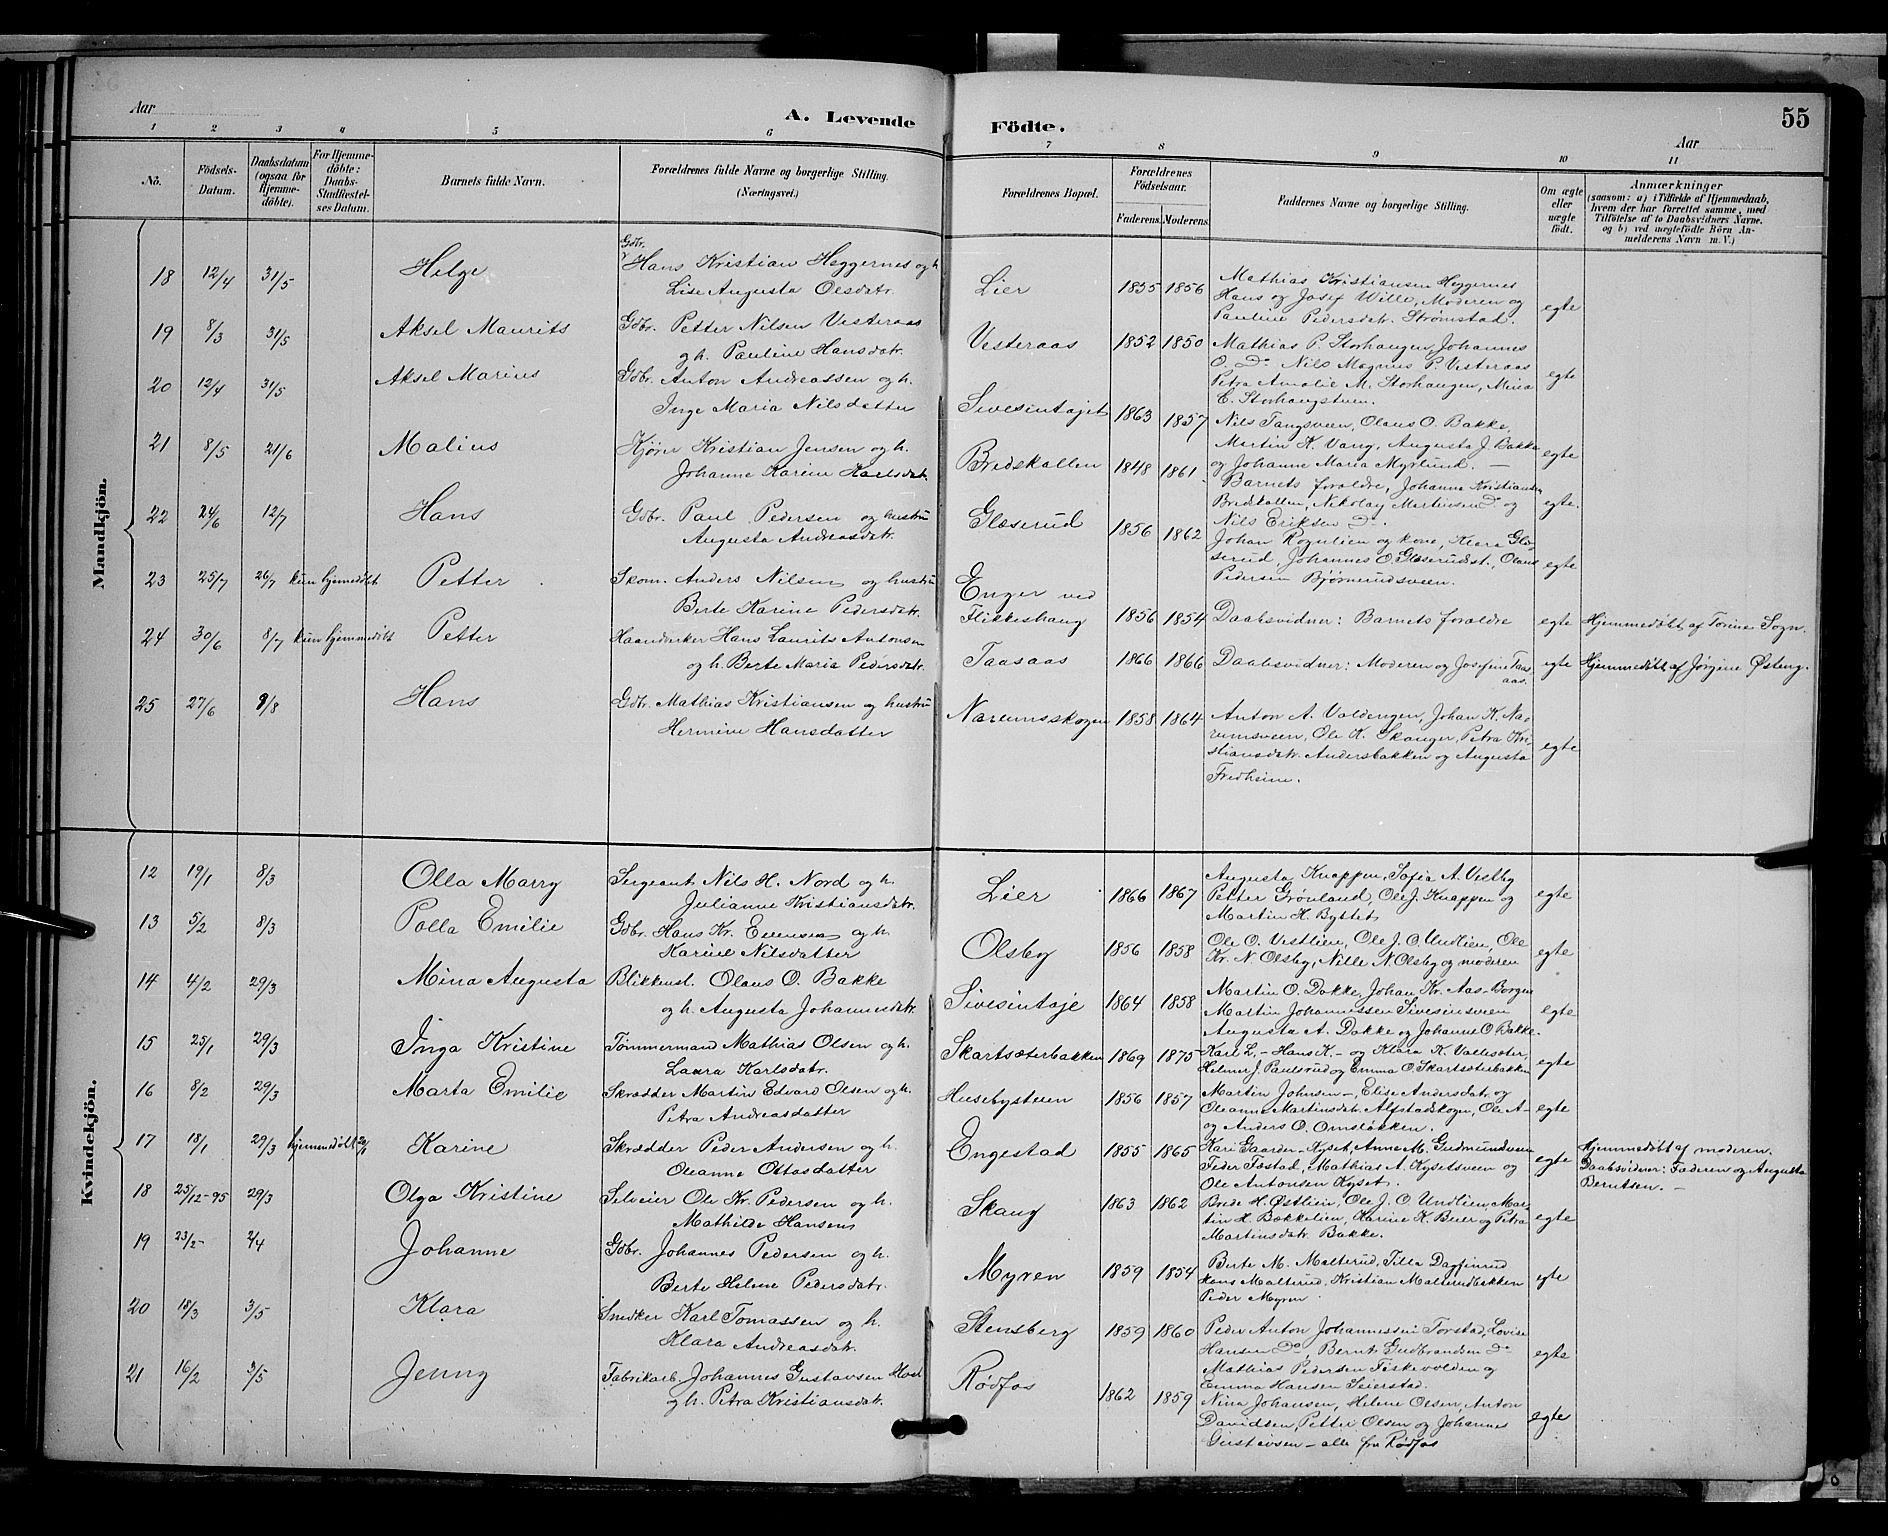 Aar
A. Levende Födte.
Aar
55
1 2 3 4 5 6 7 8 9 10 11
No.
Födsels-
Datum.
Daabsdatum
(ogsaa for
Hjemme-
döbte).
For Hjemme-
döbte:
Daabs-
Stadfæstel-
ses Datum.
Barnets fulde Navn.
Forældrenes fulde Navne og borgerlige Stilling.
(Næringsvei.)
Forældrenes Bopæl.
Forældrenes
Födselsaar.
Faderens. Moderens.
Faddernes Navne og borgerlige Stilling.
Om ægte
eller
uægte
födt.
Anmærkninger
(saasom: a) i Tilfælde af Hjemmedaab,
hvem der har forrettet samme, med
Tilföielse af to Daabsvidners Navne.
og b) ved uægtefödte Börn An-
melderens Navn m. V.)
Mandkjön.
18 12/4 31/5 Helge
Gdbr.
Hans Kristian Heggernes og h.
Lise Augusta Olsdatr.
Lier 1855 1856
Mathias Kristiansen Heggernes
Hans og Josef Wille, Moderen og
Pauline Pedersdatr. Strømstad.
egte
19 8/3 31/5 Aksel Maurits
Gdbr. Petter Nilsen Vesteraas
og h. Pauline Hansdatr.
Vesteraas 1852 1850
Mathias P. Storhaugen, Johannes
O. Do Nils Magnus P. Vesteraas
Petra Amalie M. Storhaugen, Mina
E. Storhaugstuen.
egte
20 12/4 31/5 Aksel Marius
Gdbr. Anton Andreassen og h.
Inge Maria Nilsdatter
Sivesintajet 1863 1857
Nils Tangsveen, Olaus O. Bakke,
Martin K. Vang, Augusta J. Bakke
og Johanne Maria Myrlund. —
egte
21 8/5 21/6 Malius
Kjører Kristian Jensen og h.
Johanne Karine Karlsdatr.
Bredskallen 1848 1861
Barnets foraldre, Johanne Kristiansen
Bredskallen, Nikolay Martinsen Do og
Nils Eriksen Do.
egte.
22 24/6 12/7 Hans
Gdbr. Paul Pedersen og hustru
Augusta Andreasdatr.
Glæserud 1856 1862
Johan Rognlien og kone, Klara Glæ-
serud, Johannes O. Glæserudst., Olaus
Pedersen Bjørnerudsveen.
egte
23 25/7 26/7 kun hjemmedøbt Petter
Skom. Anders Nilsen og hustru
Berte Karine Pedersdatr.
Enger ved
Flikkeshaug 1856 1854
Daabsvidner: Barnets foraldre
egte
Hjemmedøbt af Torine Sogn.
24 30/6 8/7 kun hjemmedøbt Petter
Haandverker Hans Laurits Antonsen
og h. Berte Maria Pedersdatr.
Taasaas 1866 1866
Daabsvidner: Moderen og Josefine Taas-
aas.
egte
Hjemmedøbt af Jørgine Østeng.
25 27/6 9/8 Hans
Gdbr. Mathias Kristiansen og hustru
Hermine Hansdatter
Narumsskogen 1858 1864
Anton A. Valdengen, Johan K. Na-
rumsveen, Ole K. Skanger, Petra Kri-
stiansdatr. Andersbakken og Augusta
Fredheim.
egte
Kvindekjön.
12 19/1 8/3 Olla Marry
Sergeant Nils H. Nord og h.
Julianne Kristiansdatr.
Lier 1866 1867
Augusta Knappen, Sofia A. Vestby
Petter Grønland, Ole J. Knappen og
Martin H. Bystet.
egte
13 5/2 8/3 Palla Emilie
Gdbr. Hans Kr. Evensen og h.
Karine Nilsdatter
Olsby 1856 1858
Ole O. Vestlien, Ole J. O. Undlien, Ole
Kr. N. Olsby, Nille N. Olsby og moderen
egte
14 4/2 29/3 Mina Augusta
Blikkensl. Olaus O. Bakke
og h. Augusta Johannesdatr.
Sivesintaje 1864 1858
Martin O. Dakke, Johan Kr. Aas-Borgen
Martin Johannessen Sivesinsveen
Augusta A. Dakke og Johanne O. Bakke.
egte
15 25/1 29/3 Inga Kristine
Tømmermand Mathias Olsen og h.
Laura Karlsdatr.
Skartsæterbakken 1869 1875
Karl L. - Hans K. - og Klara K. Vallesæter,
Helmer J. Paulsrud og Emma O. Skartsæterbakken
egte
16 8/2 29/3 Marta Emilie
Skrædder Martin Edvard Olsen og h.
Petra Andreasdatter
Husebysteien 1856 1857
Martin Johnsen —, Elise Andersdatr. og
Oleanne Martinsdatr. Alfstadskogen, Ole A -
og Anders O. Omsløkken.
egte
17 18/1 29/3 hjemmedøbt 20/1 Karine
Skrædder Peder Andersen og h.
Oleanne Ottosdatter
Engestad 1855 1865
Kari Gaarder - Kyset, Anne M. Gudmundsveen
Peder Fæstad, Mathias A. Kysetsveen og
Ole Antonsen Kyset.
egte
Hjemmedøbt af moderen.
Daabsvidner: Faderen og Augusta
Berntsen. —
18 25/12-95 29/3 Olga Kristine
Selveier Ole Kr. Pedersen og h.
Mathilde Hansen
Skaug 1863 1862
Brede H. Østlien, Ole J. O. Undlien, Mar-
tin H. Bækkelien, Karine K. Beier og Petra
Martinsdatr. Bakke.
egte
19 23/2- 2/4 Johanne
Gdbr. Johannes Pedersen og h.
Berte Helene Pedersdatr.
Myren 1859 1854
Berte M. Malterud, Tilla Dagfinrud
Hans Malterud, Kristian Malterudbakken
Peder Myren
egte
20 18/3 3/5 Klara
Snedker Karl Tomassen og h.
Klara Andreasdatr.
Stensberg 1859 1860
Peder Anton Johannessen Torstad, Lovise
Hansen Do, Bernt Gudbrandsen Do
Mathias Pedersen Fiskevolden og
Emma Hansen Seierstad.
egte
21 16/2 3/5 Jenny
Fabrikarb. Johannes Gustavsen Hval
og h. Petra Kristiansdatr.
Rødfos 1862 1859
Nina Johansen, Helene Olsen, Anton
Davidsen, Petter Olsen og Johannes
Gustavsen — alle fra Rødfos
egte